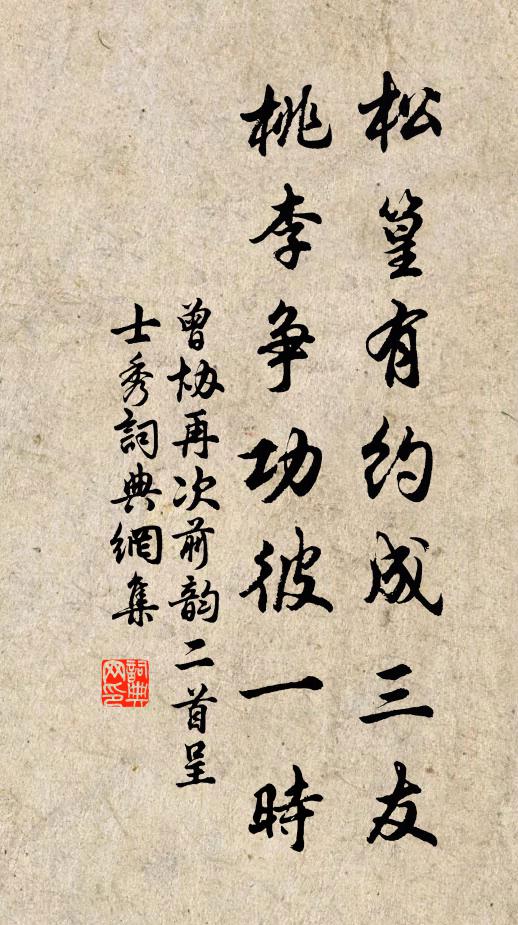 松篁有約成三友
桃李争功彼一時
曾協再次前韵二首呈
士秀詞典網集
詞典网印